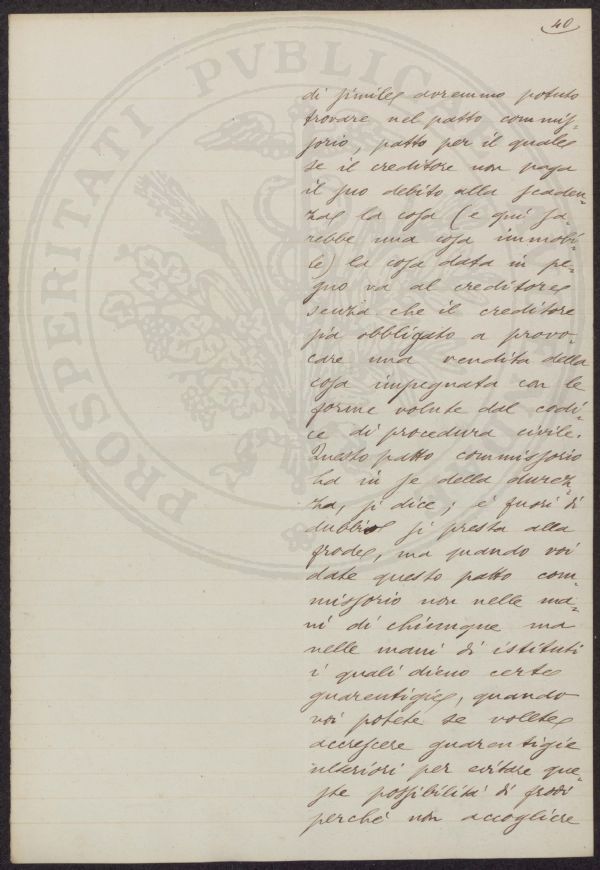 40
di simile avremmo potuto
trovare nel patto commis-
sorio, patto per il quale
se il creditore non paga
il suo debito alla scaden-
za la cosa (e qui sa-
rebbe una cosa immobi-
le) la cosa data in pe-
gno va al creditore
senza che il creditore
sia obbligato a provo-
care una vendita della
cosa impegnata con le
forme volute dal codi-
ce di procedura civile.
Questo patto commissorio
ha in se della durez-
za, si dice; è fuori di
dubbio si presta alla
frode, ma quando voi
date questo patto com-
missorio non nelle ma-
ni di chiunque ma
nelle mani di istituti
i quali dieno certe
guarentigie, quando
voi potete se volete
accrescere guarentigie
ulteriori per evitare que-
ste possibilità di frodi
perché non accogliere
PROSPERITATI PVBLICAE